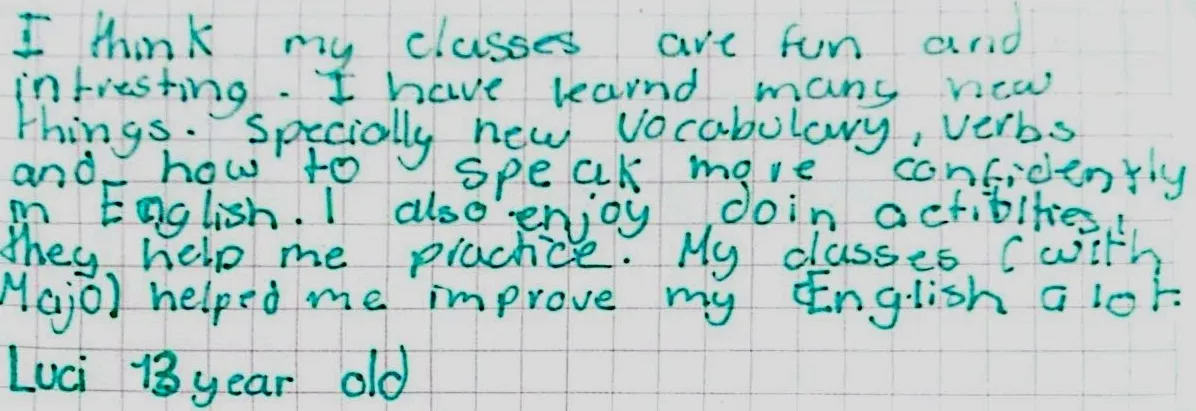 I think my classes are fun and
intresting. I have learnd many new
things. Specially new vocabulary, verbs
and how to speak more confidently
in English. I also enjoy doin actibities,
they help me practice. My classes (with
Majo) helped me improve my English a lot.
Luci 13 year old